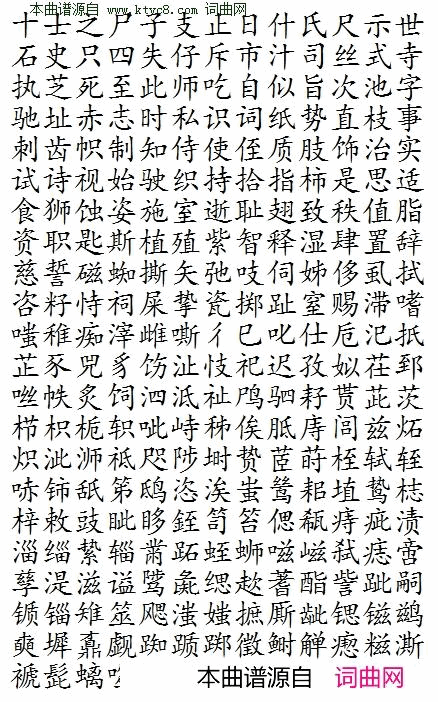 十士之尸子支止日什氏尺示世
本曲谱源自 www.ktvc8.com 词曲网
石史只四失仔斥市汁司丝式寺
执芝死至此师吃自似旨次池字
驰址赤志时私识词纸势直枝事
刺齿帜制知侍使侄质肢饰治实
试诗视始驶织持拾指柿是思适
食狮蚀姿施室逝耻翅致秩值脂
资职匙斯植殖紫智释湿肆置辞
慈誓磁蜘撕矢弛吱伺姊侈虱拭
咨籽恃祠屎挚瓷掷趾室赐滞嗜
嗤稚痴滓雌嘶彳巳叱仕卮汜抵
芷豕兕豸饬沚忮祀迟孜姒茬郅
咝帙炙饲泗泜祉鸤驷耔贳茈茨
栉枳栀轵呲峙秭俟胝庤阊兹炻
炽泚浉祗咫陟埘贽茝莳桎轼轾
哧铈舐笫鸱恣涘蚩鸶耜埴鸷梽
梓敕豉眦眵铚笥笞偲瓻痔疵渍
淄缁絷辎黹跖蛭蛳嗞嵫弑痣啻
孳湜滋谥骘彘缌趑蓍酯訾跐嗣
锧锱雉筮飔滍媸摭厮龇锶镃鹚
奭墀鼒觑踟踬踯徵鲥觯瘛糍澌
褫髭螭
本曲谱源自 词曲网